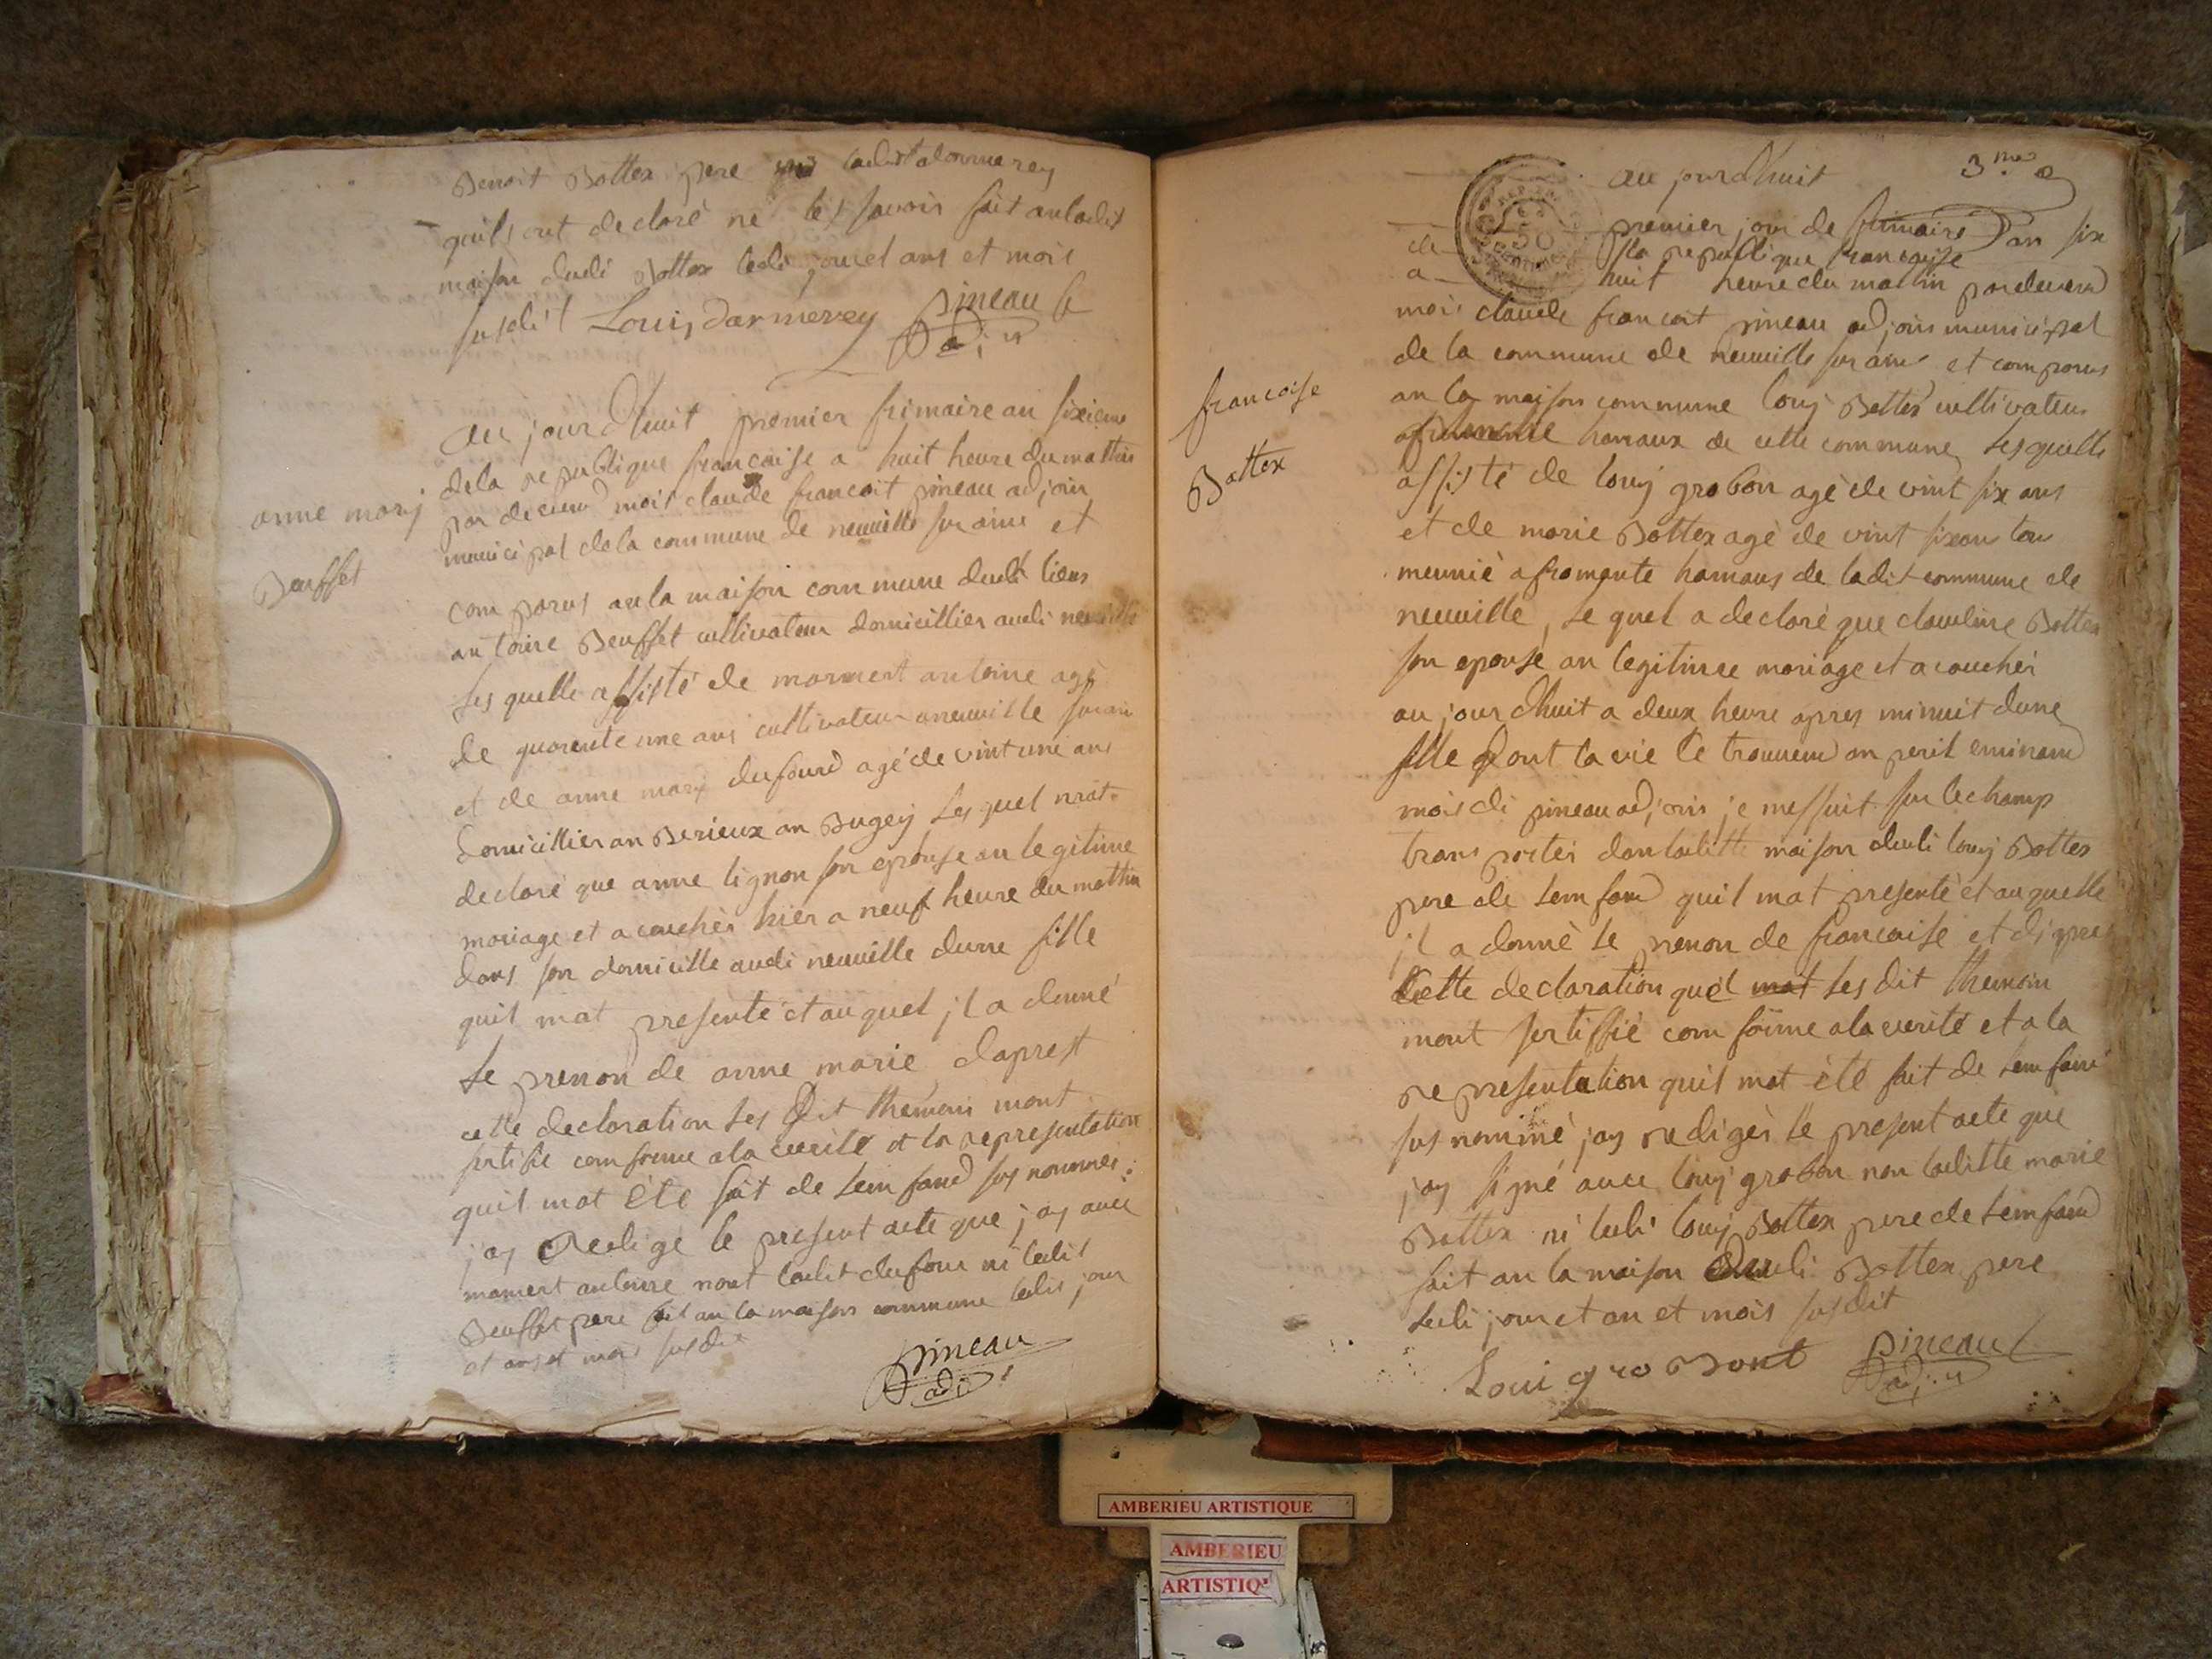 Benoit Bottex pere ladist
quils ont declaré ne les savoir fait anladit
maison dudi Bottex ledi jour et ans et mois
susdit Louis Darmerey pineau
adj
au jourdhuit premier frimaire an sixieme
dela republique francaise a huit heure du mattin
par devend mois claude francoit pineau adjoin
municipal dela commune de neuville sur ains et
anne mary
Beuffet
comparus anla maison commune dudi lieus
antoine Beuffet cultivateur domicillier audi neuville
lesquelle assisté de mormert antoine agé
de quarente une ans cultivateur aneuville surain
et de anne mary dufourd agé de vint une ans
domicillier an Berieux an Bugey lesquel mat
declaré que anne lignon son epouse an legitime
mariage et acouchér hier a neuf heure du mattin
dans son domicille audi neuville dune fille
quil mat presenté et auquel jl a donné
le prenon de anne marie daprest
cette declaration les dit themoin mont
sertifie comforme ala verité et la representation
quil mat été fait de lemfand sus nommer
jay redige le present acte que jay avec
mament antoine nont ladit dufour ni ledit
Beuffet pere fait an la maison commune ledit jour
et ans et mois susdit
pineau
adj
3.me
au jourdhuit
premier jour de frimaire an six
de la republique francaise
a huit heure du mattin pardevend
mois claude francoit pineau adjoin municipal
de la commune de neuville sur ains et comparus
an la maison commune louy Bottex cultivateur
francoise
Bottex
afromente hamaux de cette commune lesquelle
assisté de louy grobon agé de vint six ans
et de marie Bottex agé de vint sixans tou
meunié afromente hamaus de ladit commune de
neuville, lequel a declaré que claudine Bottex
son epouse an legitimee mariage et acouchér
aujourdhuit a deux heure apres minuit dune
fille dont la vie le trouvend an peril eminand
mois di pineau adjoin je messuit sur lechamp
trans portér dan laditte maison dudi louy Bottex
pere de lemfand quil mat presenté et auquelle
jl a donné le prenon de francaise et di pres
cette declaration quel mat les dit themoin
mont sertiffié comforme ala verité et ala
representation quil mat été fait de lemfand
sus nommé jay redigér le present acte que
jay signé avec louy grobon non laditte marie
Bottex ni ledi louy Bottex pere de lemfand
fait an la maison dudi Bottex pere
ledi jour et an et mois susdit
Loui gro Bont pineau
adj
AMBERIEU ARTISTIQUE
AMBERIEU
ARTISTIQ